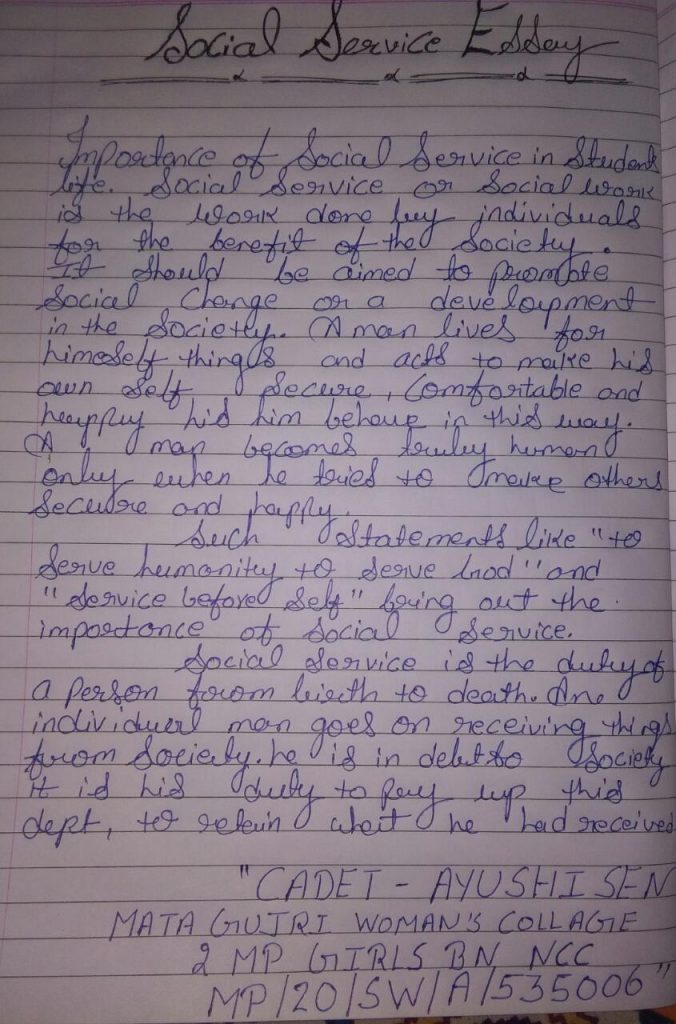 Social Service Essay
Importance of Social Service in Student
life. Social Service or Social work
is the work done by individuals
for the benefit of the Society.
It should be aimed to promote
Social Change or a development
in the Society. A man lives for
himself things and acts to make his
own self secure, Comfortable and
happy his him behave in this way.
A man becomes truly human
only when he tries to make others
Secure and happy.
Such Statements like "to
Serve humanity to serve God" and
"Service before Self" bring out the
importance of Social Service.
Social Service is the duty of
a person from birth to death. An
individual man goes on receiving things
from Society. he is in debt to Society
It is his duty to pay up this
dept, to retain what he had received
"CADET - AYUSHI SEN
MATA GUJRI WOMAN'S COLLAGE
2 MP GIRLS BN NCC
MP/20/SW/A/535006"